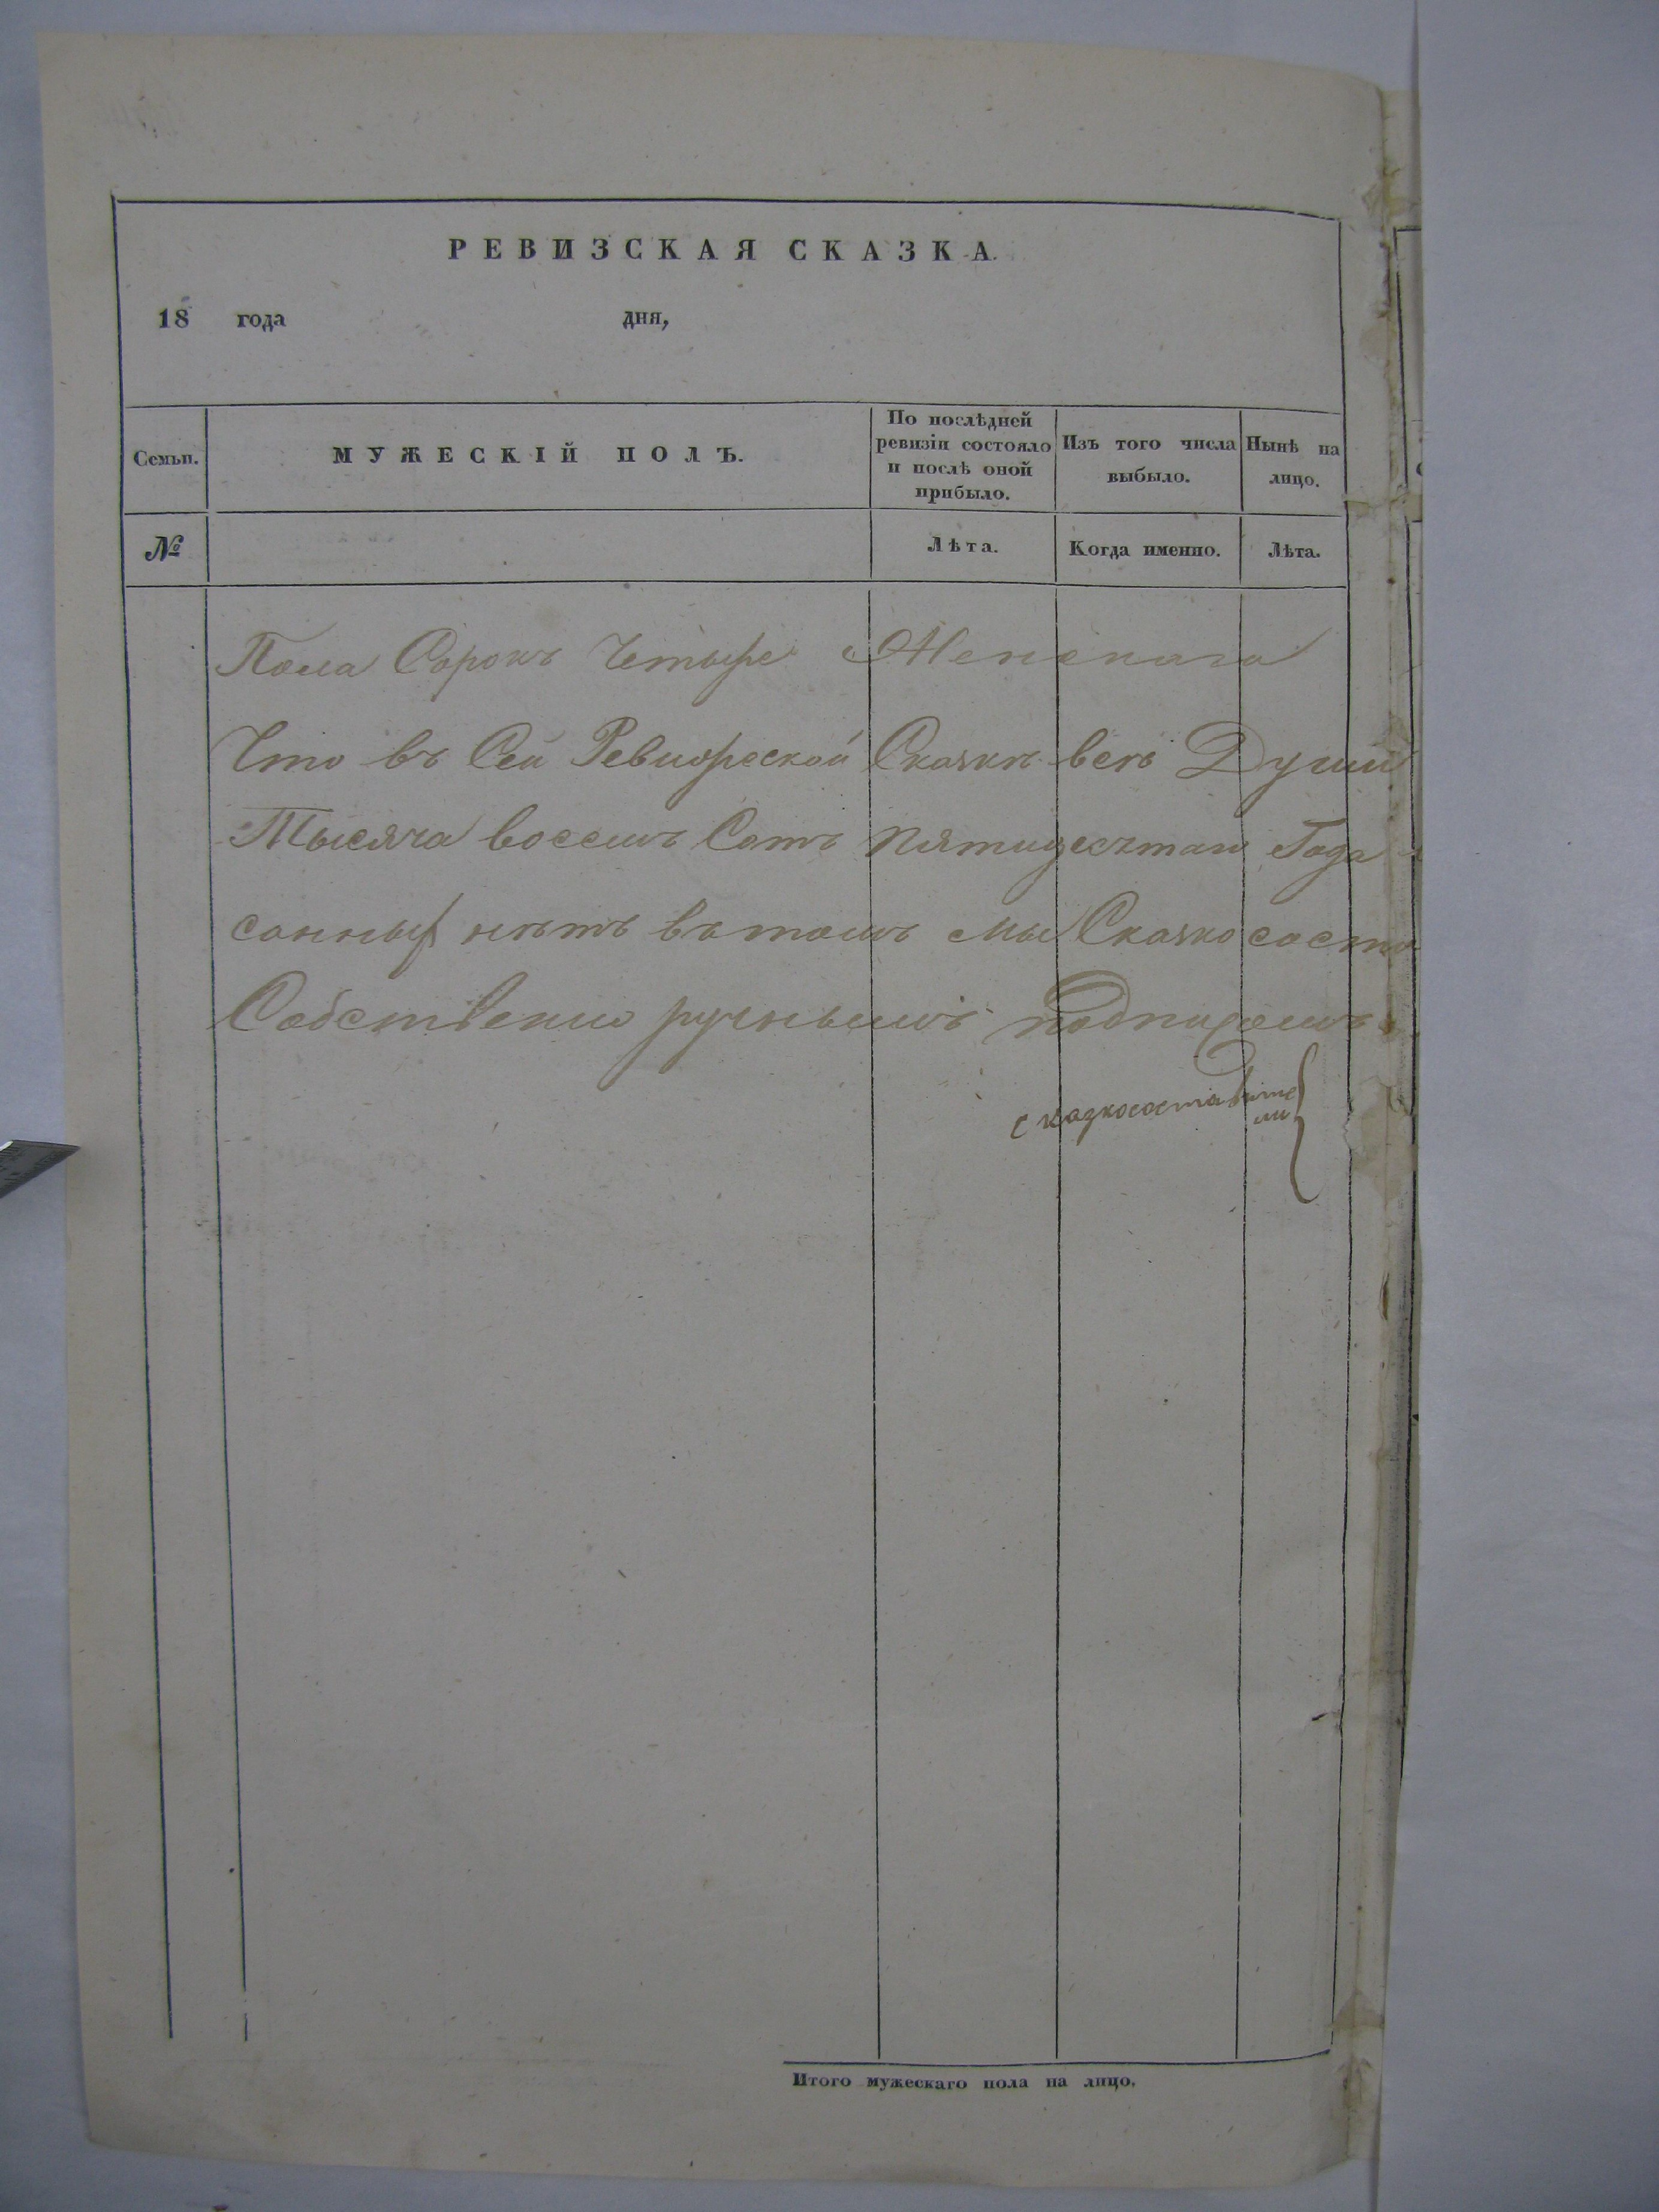 РЕВИЗСКАЯ СКАЗКА.
18 года дня,
Семьи.
МУЖЕСКІЙ ПОЛЪ.
По послѣдней ревизіи состояло и послѣ оной прибыло.
Изъ того числа выбыло.
Нынѣ на лицо.
№
Лѣта.
Когда именно.
Лѣта.
Пола Сорокъ Четыре Женскаго
Что въ Сей Ревизской Сказкѣ всѣ Души
Тысяча восемь Сотъ пятидесятаго Года
санныхъ нѣтъ въ томъ мы Сказкососта
Собственно ручнымъ подписомъ
сказкосоставители
Итого мужескаго пола на лицо.